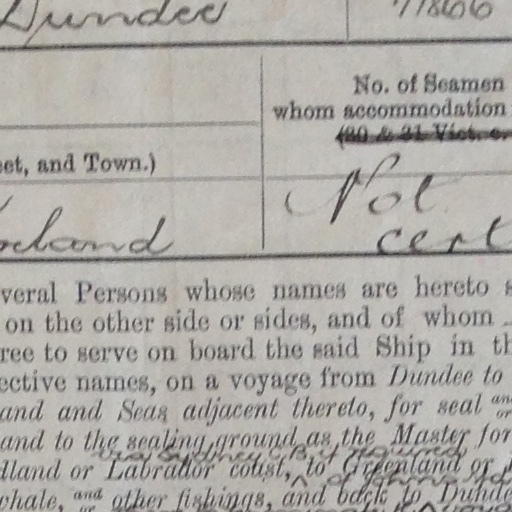 Dundee
No. of Seamen
whom accommodation
(30 & 31 Vict. c.
et, and Town.)
Not
cert
veral Persons whose names are hereto s
on the other side or sides, and of whom
ree to serve on board the said Ship in th
ective names, on a voyage from Dundee to
and and Seas adjacent thereto, for seal and or
and to the sealing ground as the Master for
dland or Labrador coast, to Greenland or
whale, and or other fishings, and back to Dunde